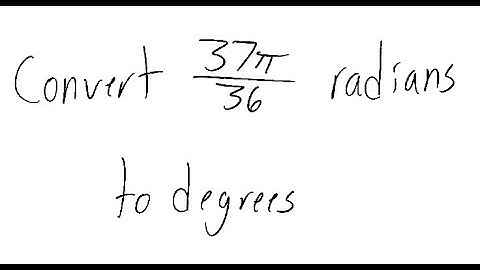 Convert 37π/36 radians
to degrees